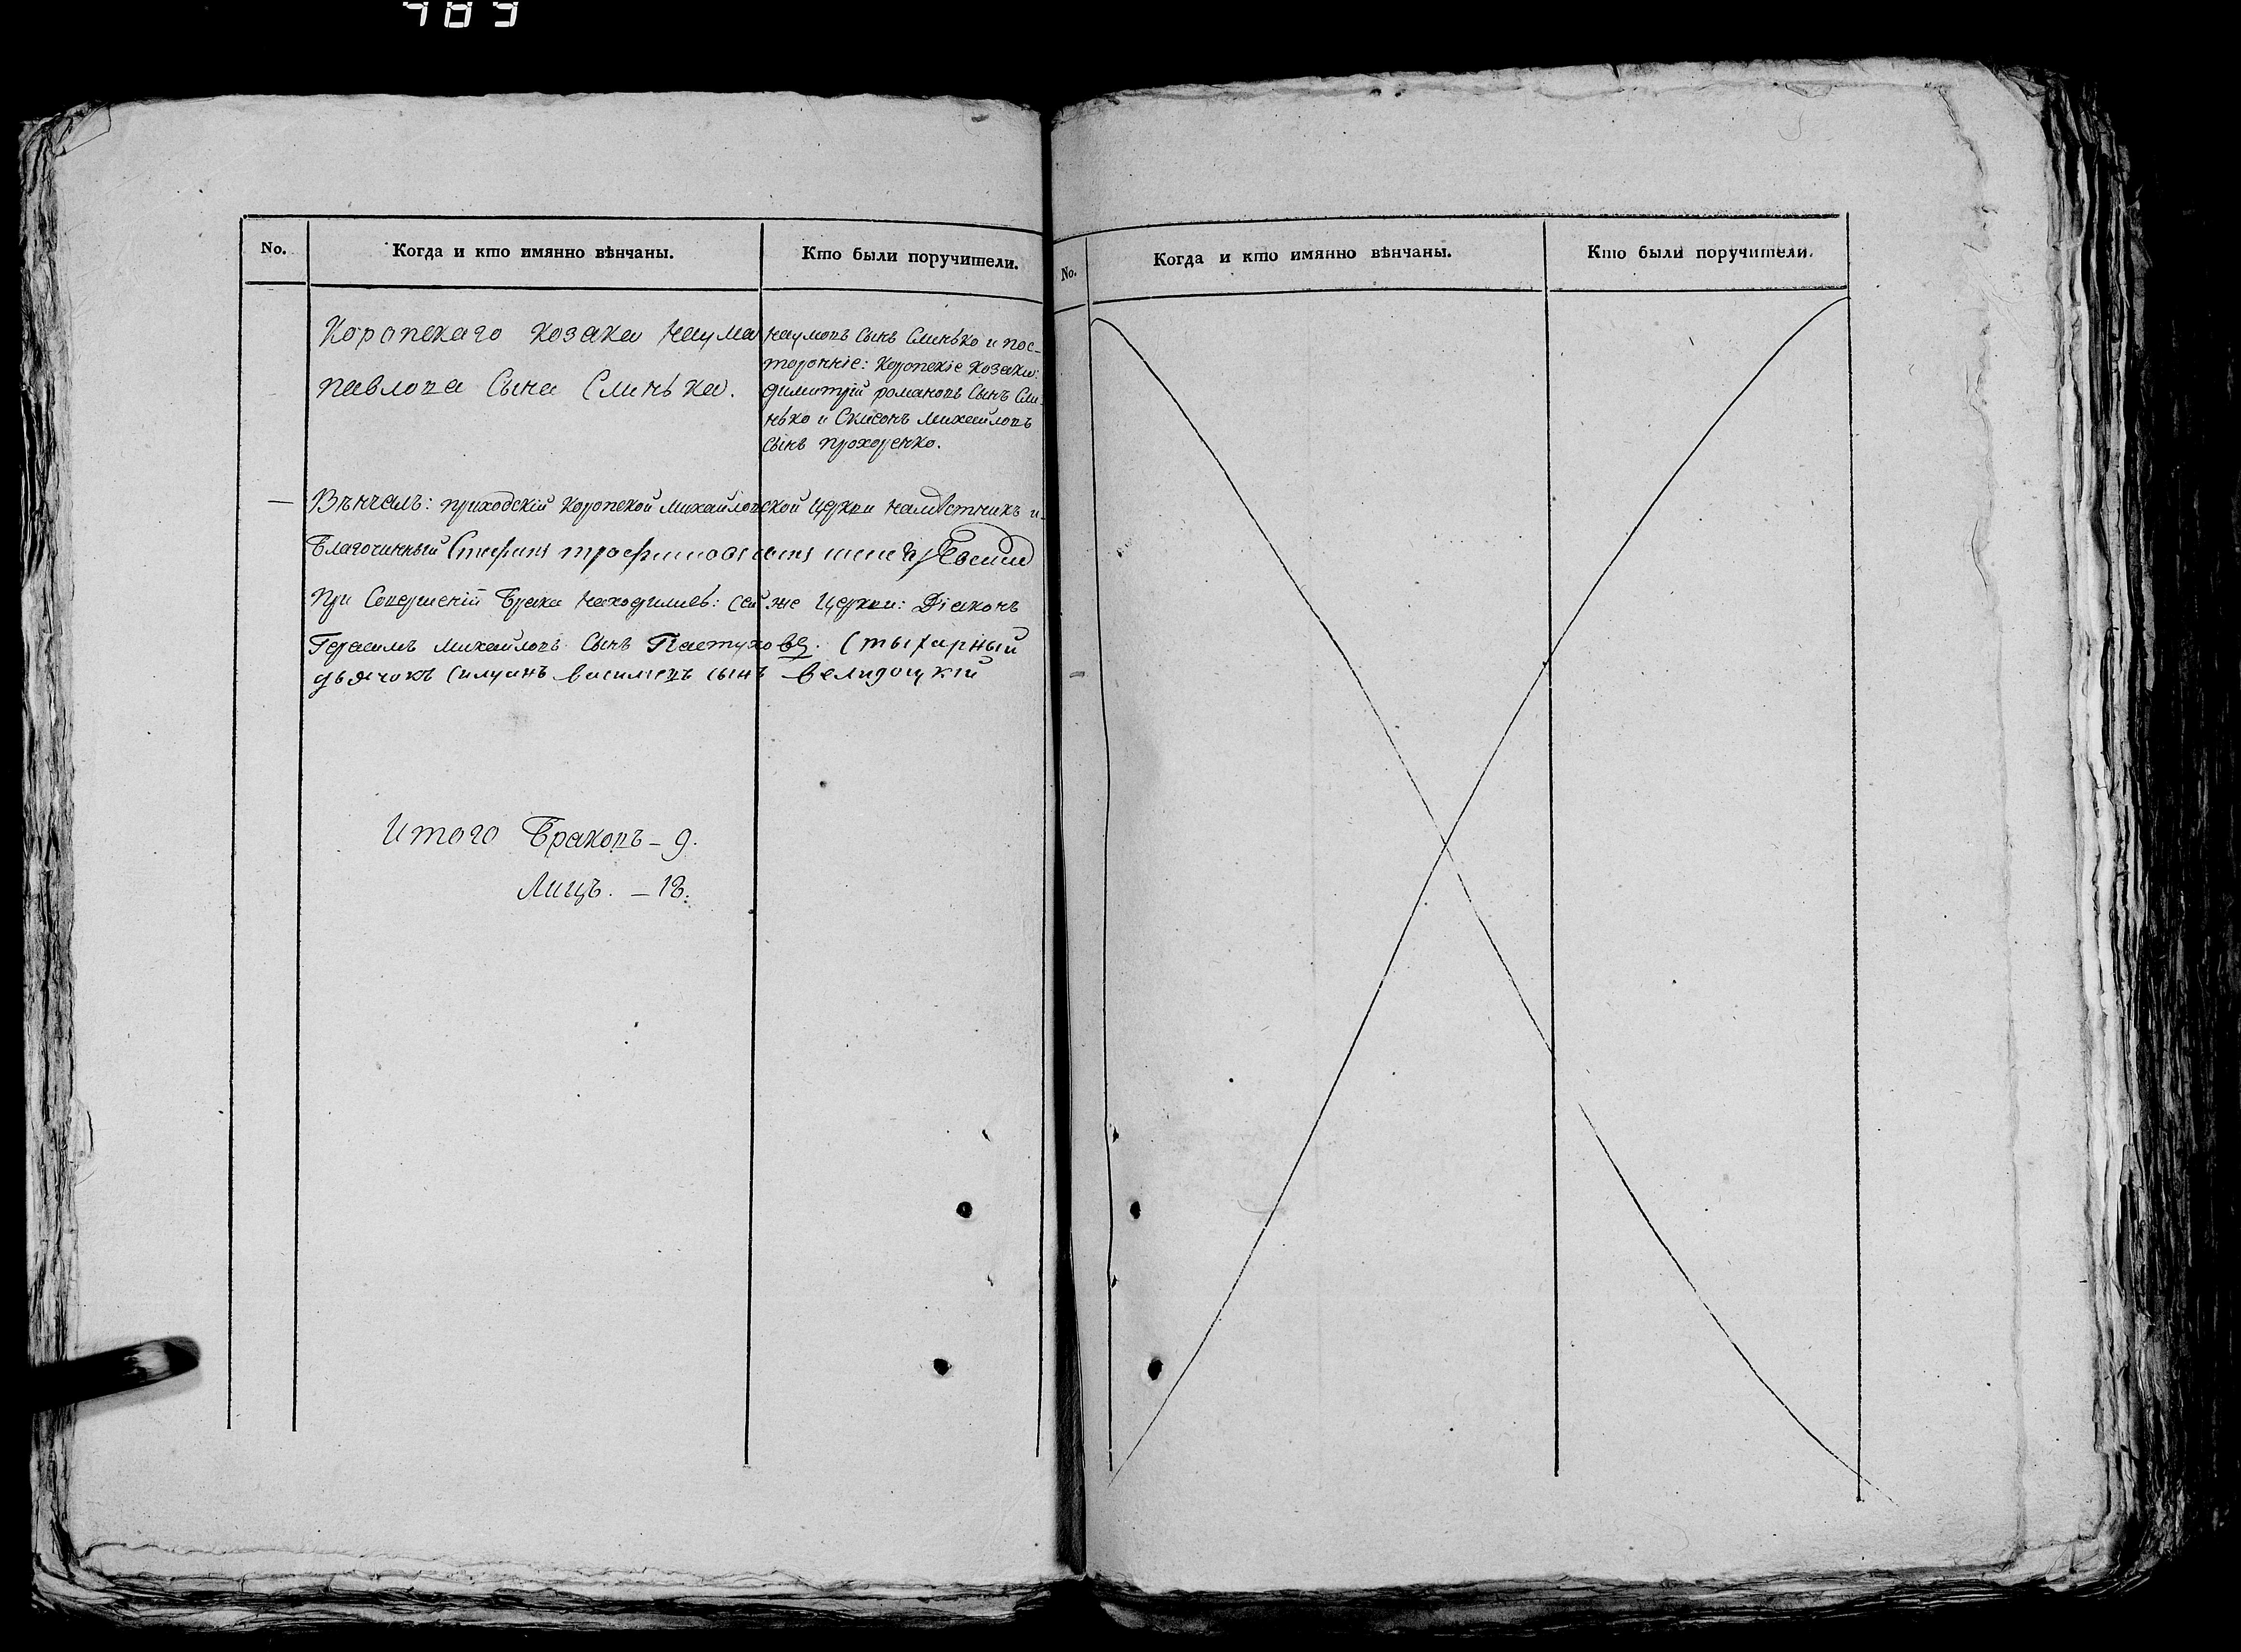 No.
Когда и кто имянно вѣнчаны.
Кто были поручители.
Коропскаго козака Наума
Павлова Сына Слинька.
Наумовъ Сынъ Слинько и пос-
торонніе: Коропскіе козаки:
Димитрій Романовъ Сынъ Сли-
нько и Сѵмеонъ Михайловъ
Сынъ Прохоренко.
— Вѣнчалъ: приходскій Коропской Михайловской Церкви Намѣстникъ и
Благочинный Стефанъ Трофимовъ сынъ
При Совершеніи Брака Находились: Сей же Церкви: Діаконъ
Герасимъ Михайловъ Сынъ Пастуховъ. Стыхарный
дьячокъ Силуанъ Василіевъ сынъ Велидоцкій
Итого Браковъ – 9.
Лицъ. – 18.
No.
Когда и кто имянно вѣнчаны.
Кто были поручители.